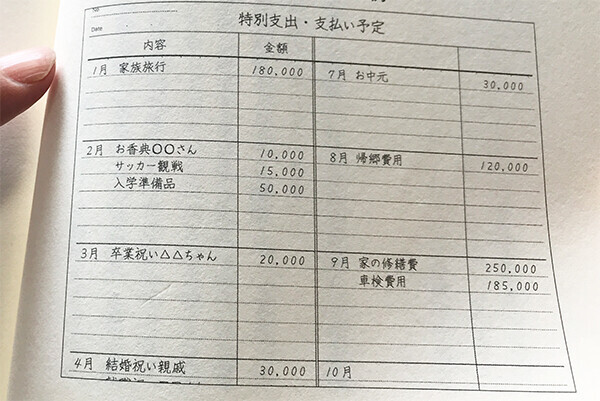 Date
特別支出・支払い予定
内容 金額
1月 家族旅行 180,000
2月 お香典○○さん 10,000
サッカー観戦 15,000
入学準備品 50,000
3月 卒業祝い△△ちゃん 20,000
4月 結婚祝い親戚 30,000
7月 お中元 30,000
8月 帰郷費用 120,000
9月 家の修繕費 250,000
車検費用 185,000
10月